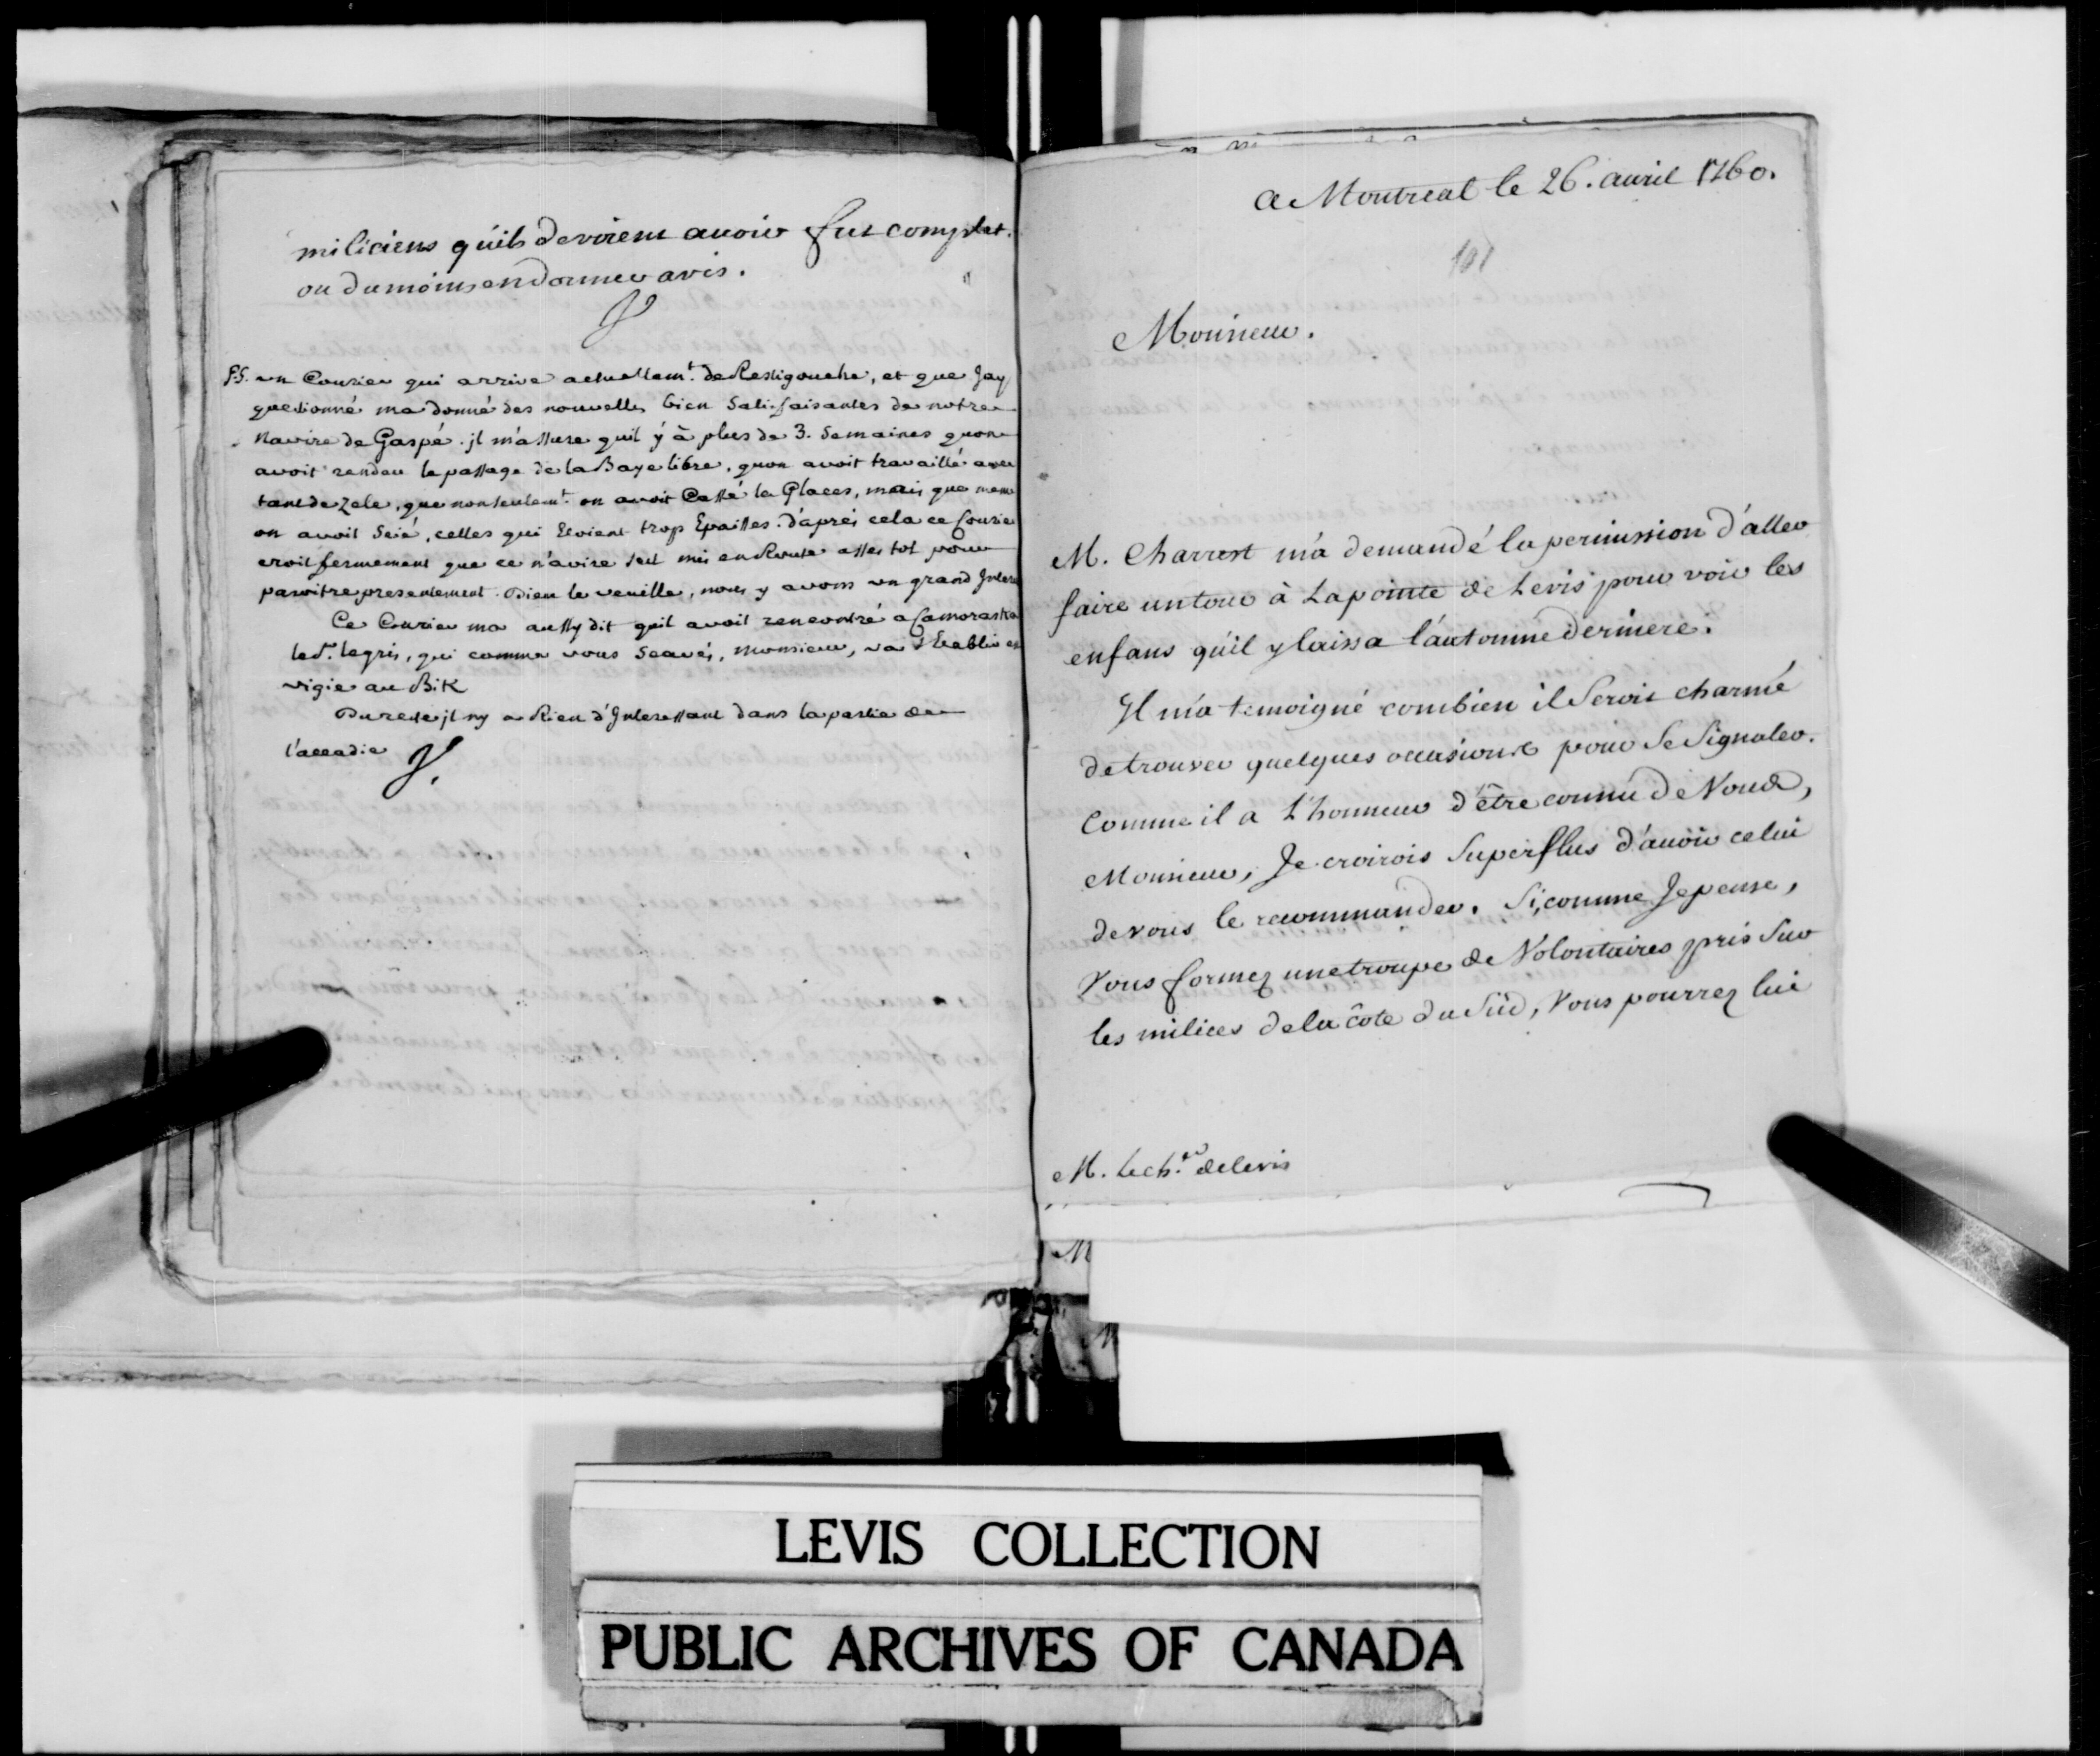 miliciens qu'ils devoient avoir fut complet.
ou dumoins en donner avis.
P.S. un Courier qui arrive actuellem.t de Restigouche, et que Jay
questionné ma donné des nouvelles bien Satisfaisantes de notre
Navire de Gaspé. jl m'assure quil ÿ à plus de 3. Semaines quon
avoit rendu le passage de la Baye libre, quon avoit travaillé avec
tant de Zele, que nonseulem.t on avoit Cassé la Glaces, mais que meme
on avoit Scié, celles qui Etoient trop Epaisses. d'aprés cela ce Courier
croit fermement que ce n'avire s'est mis en Route assés tot pour
paroitre presentement. Dieu le veuille, nous y avons un grand Interet
Ce Courier ma aussy dit quil avoit rencontré a Camoraska
le S.r legris, qui comme vous Scavés, monsieur, va s'Etablir en
vigie au Bik
Dureste jl ny a Rien d'Interessant dans la partie de
l'accadie
A Montreal le 26. avril 1760.
101
Monsieur.
M. Charrest m'a demandé la permission d'aller
faire un tour à Lapointe de Levis pour voir les
enfans qu'il y laissa l'automne derniere.
Il m'a temoigné combien il Seroit charmé
de trouver quelques occasions pour Se Signaler.
Comme il a L'honneur d'être connu de Vous,
Monsieur, Je croirois Superflus d'avoir celui
de vous le recommander. Si, comme Je pense,
Vous formez une troupe de Volontaires pris Sur
les milices de la côte du Sud, Vous pourrez lui
M. Le ch.er de levis
M
LEVIS COLLECTION
PUBLIC ARCHIVES OF CANADA